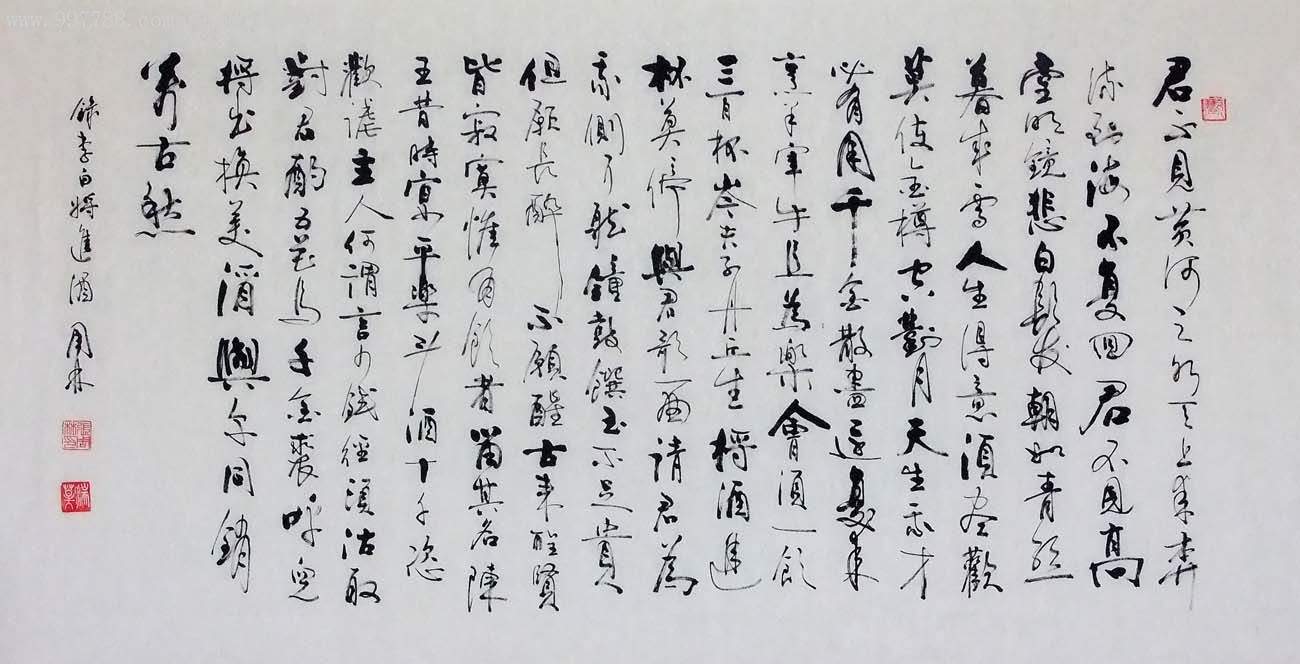 君不見黄河之水天上来奔
流到海不复回君不見高
堂明鏡悲白髮朝如青丝
暮成雪人生得意须尽歡
莫使金樽空對月天生我才
必有用千金散盡還复来
烹羊宰牛且為樂會须一飲
三百杯岑夫子丹丘生將酒進
杯莫停與君歌一曲請君為
我側耳聽鐘鼓饌玉不足貴
但願長醉不願醒古来聖賢
皆寂寞惟有飲者留其名陳
王昔時宴平樂斗酒十千恣
歡謔主人何謂言少錢徑须沽取
對君酌五花馬千金裘呼兒
將出換美酒與尔同銷
萬古愁
錄李白將進酒 周林
www.997788.com